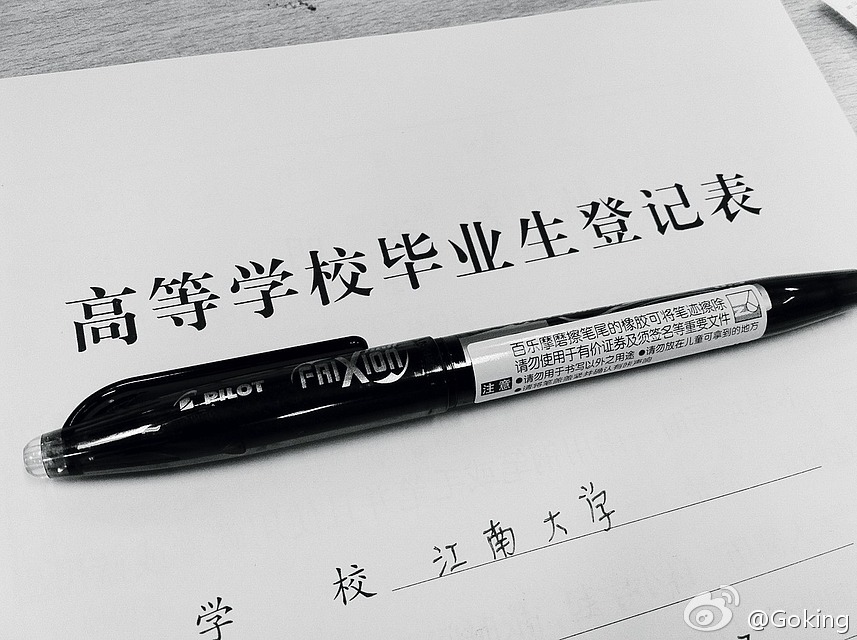 高等学校毕业生登记表
PILOT
FRIXION
百乐摩磨擦笔尾的橡胶可将笔迹擦除
请勿使用于有价证券及须签名等重要文件
注意
●请勿用于书写以外之用途 ●请勿放在儿童可拿到的地方
●请将笔盖盖紧并确认有咔声响
学 校 江南大学
@Goking